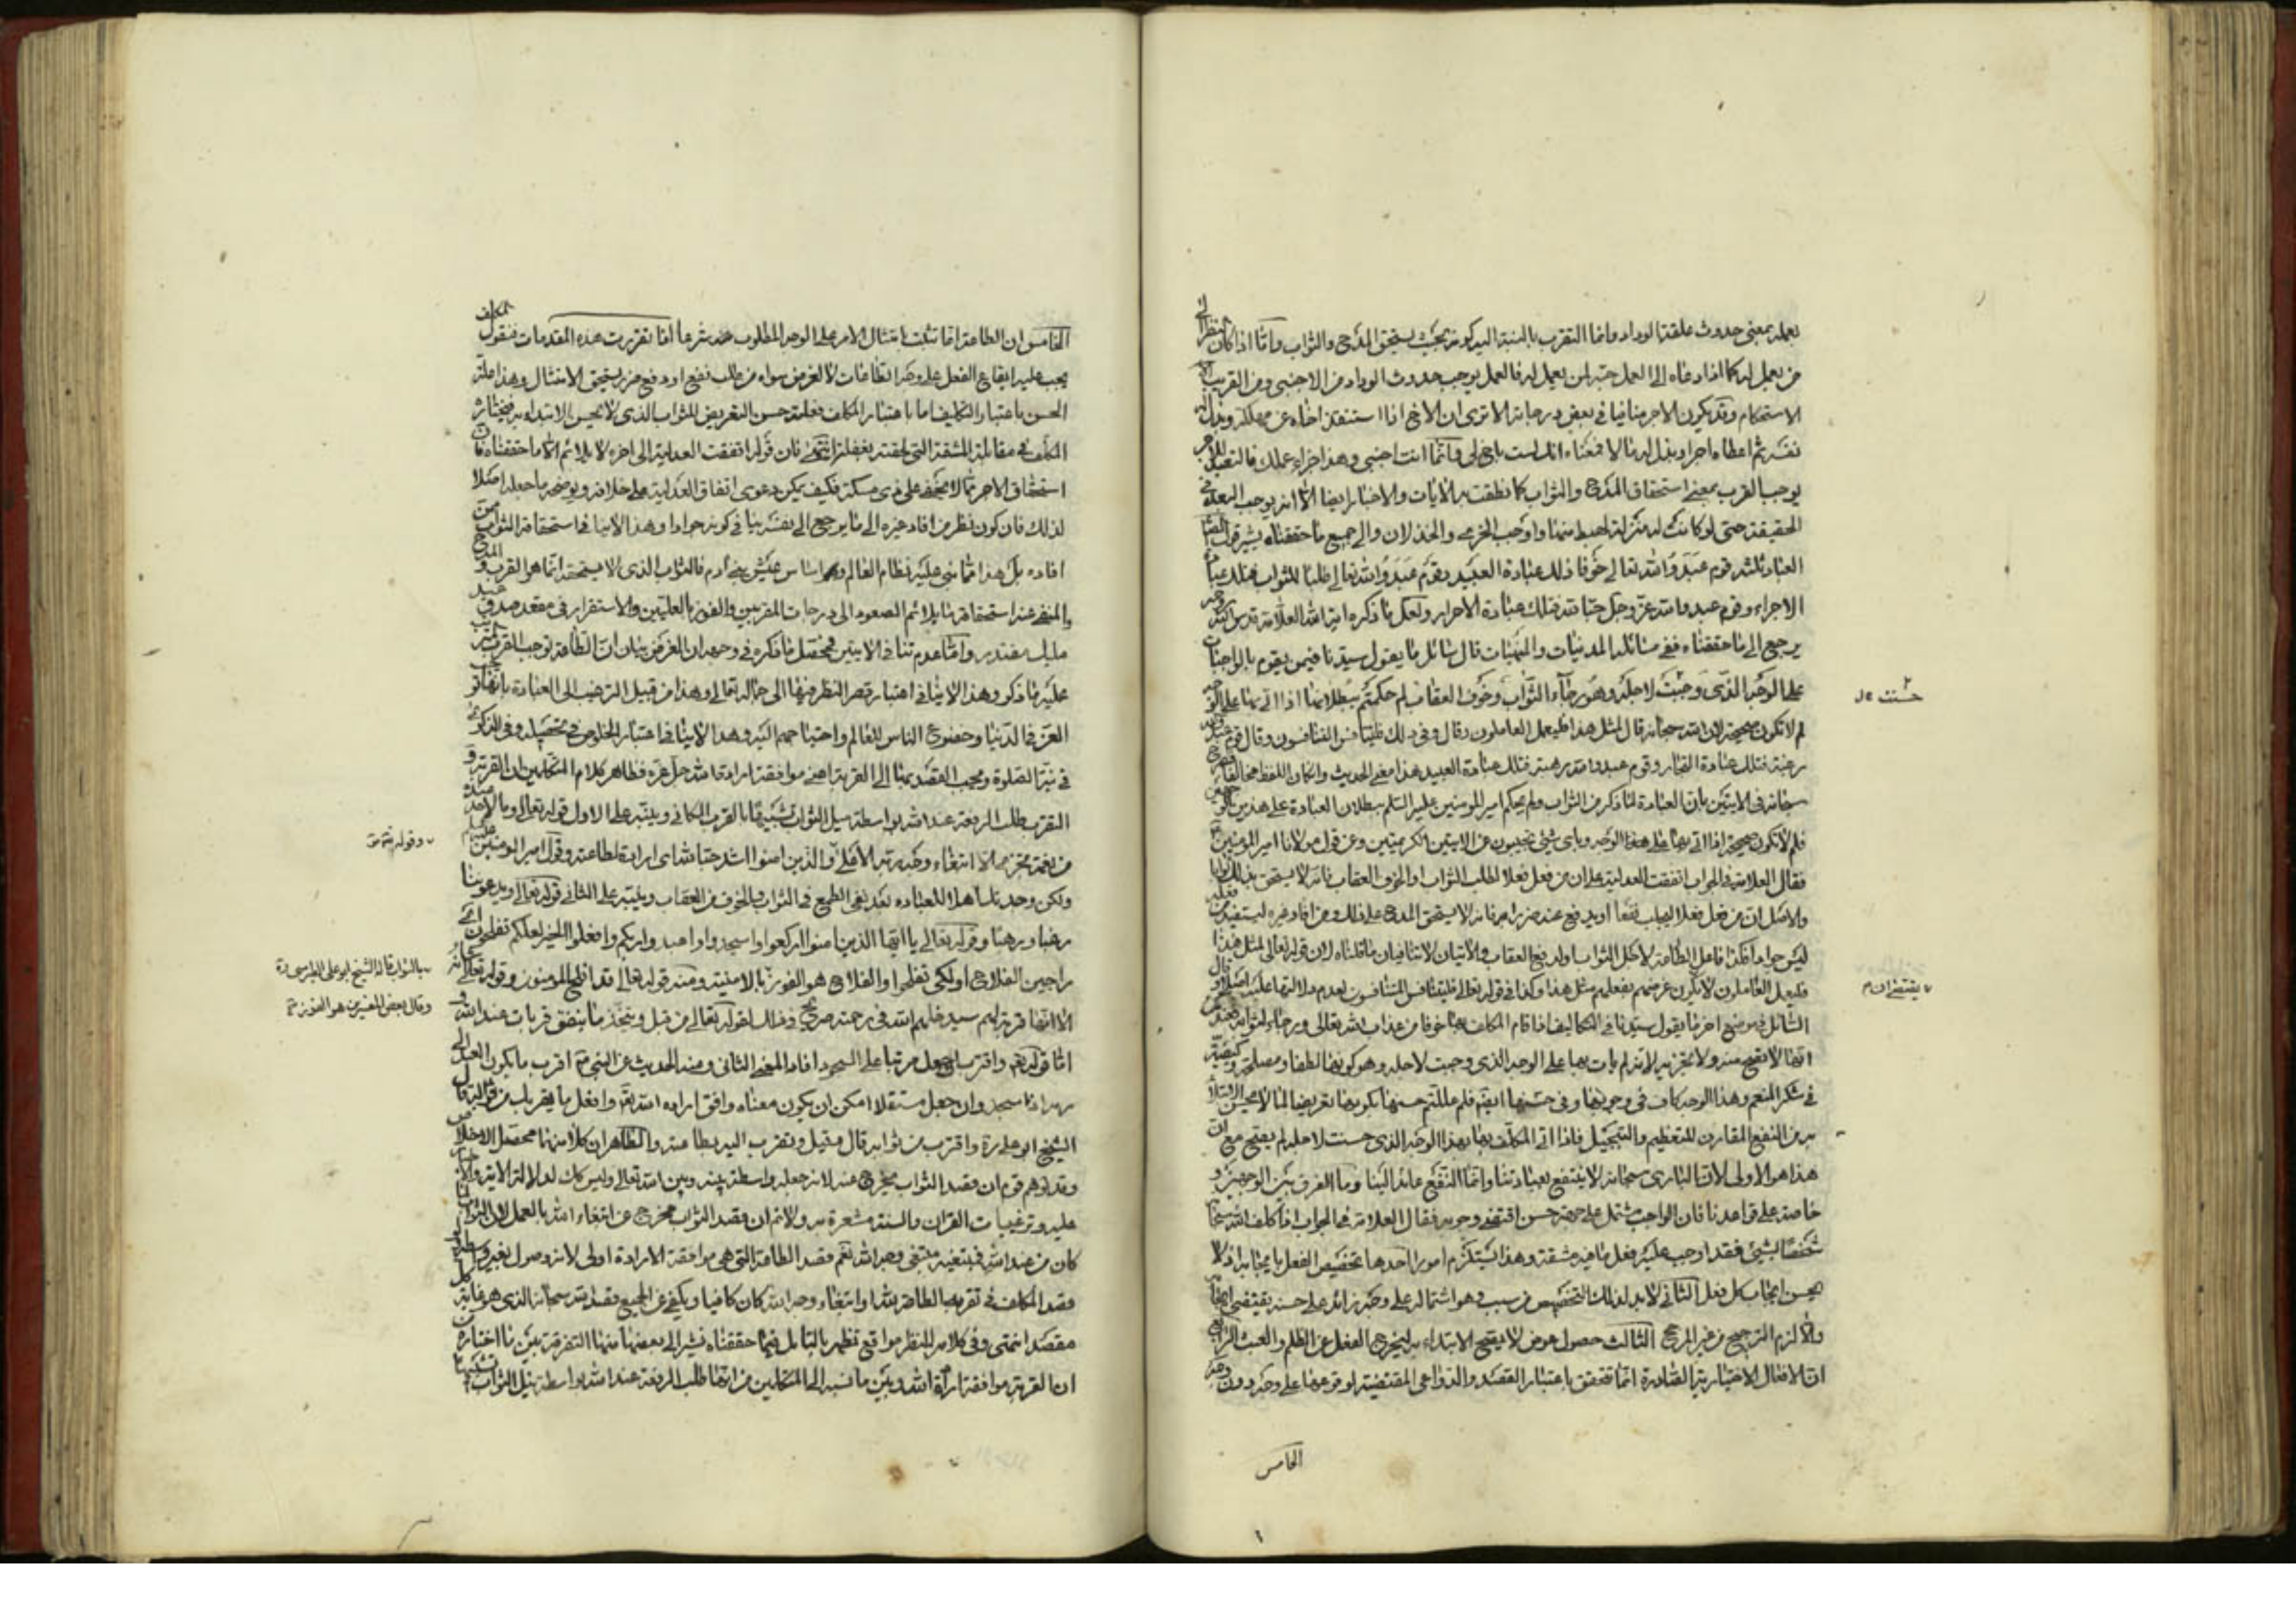 بعمله بمعنى حدوث علقة الوداد وانما التقرب بالنسبة اليه كونه بحيث يستحق المدح والثواب واما اذا كان
من يعمل له كما اذا دعاه الى العمل حبه لمن يعمل له فالعمل يوجب حدوث الوداد من الاجنبي ومن القريب
الاستحكام وقد يكون الاجر منافيا في بعض درجاته الا ترى ان الاخ اذا استنقذ اخاه عن مهلكة وبذل
نفسه ثم اعطاه اجرا وبذل له مالا فمعناه انك لست باخ لي وانما انت اجنبي وهذا جزاء عملك فالتعبد
يوجب القرب بمعنى استحقاق المدح والثواب كما نطقت به الايات والاخبار ايضا الا انه يوجب البعد في
الحقيقة حتى لو كانت له منزلة احبط منها واوجب الخزي والخذلان والى جميع ما حققناه يشير قول
العباد ثلثة قوم عبدوا الله تعالى خوفا فذلك عبادة العبيد وقوم عبدوا الله تعالى طلبا للثواب فتلك عبادة
الاجراء وقوم عبدوا الله عز وجل حبا له فتلك عبادة الاحرار ولعل ما ذكره اية الله العلامة قدس
يرجع الى ما حققناه ففي مسائل المدنيات والمهنيات قال سائل ما يقول سيدنا فيمن يقوم بالواجبات
على الوجه الذي وجبت لاجله وهو رجاء الثواب وخوف العقاب لم حكمتم ببطلانها اذا اتى بها على
لم لا تكون صحيحة لان الله سبحانه قال لمثل هذا فليعمل العاملون وقال وفي ذلك فليتنافس المتنافسون وقال قوم عبدوا
رغبة فتلك عبادة التجار وقوم عبدوا الله رهبة فتلك عبادة العبيد هذا معنى الحديث وان كان اللفظ مخالفا
سبحانه في الايتين بان العبادة لما ذكر من الثواب ولم يحكم امير المومنين عليه السلم ببطلان العبادة على هذين
فلم لا تكون صحيحة اذا اتى بها على هذا الوجه وباى شيئ تجيبون عن الايتين الكريمتين وعن قول مولانا امير المومنين
فقال العلامة في الجواب اتفقت العدلية على ان من فعل فعلا لطلب الثواب او لخوف العقاب فانه لا يستحق بذلك ثوابا
والاصل ان من فعل فعلا ليجلب نفعا او يدفع عنه ضررا به فانه لا يستحق المدح على ذلك ومن افاد غيره ليستفيد
ليس جوادا فكذا فاعل الطاعة لاجل الثواب او لدفع العقاب والايتان لا تنافيان ما قلناه لان قوله تعالى لمثل هذا
فليعمل العاملون لا يكون غرضهم بفعلهم مثل هذا وكذا في قوله تعالى فليتنافس المتنافسون لعدم دلالتها عليه اصلا
السائل في موضع اخر ما يقول سيدنا في التكاليف اذا قام المكلف بها خوفا من عذاب الله تعالى ورجاء لثوابه
انها لا تقبح منه ولا تجزيه لانه لم يات بها على الوجه الذي وجبت لاجله وهو كونها لطفا ومصلحة
في شكر المنعم وهذا الوجه كاف في وجوبها وفي حسنها ايضا فلم عللتم حسنها بكونها تعريضا لما لا يحسن الابتداء
به من النفع المقارن للتعظيم والتبجيل فاذا اتى المكلف بها بهذا الوجه الذي حسنت لاجله لم يقبح مع ان
هذا هو الاولى لان الباري سبحانه لا ينتفع بعبادتنا وانما النفع عائد الينا وما الفرق بين الوجهين و
خاصة على قواعدنا فان الواجب مشتمل على جهة حسن اقتضى وجوبه فقال العلامة في الجواب اذا كلف الله سبحانه
شخصا بشيئ فقد اوجب عليه فعل ما فيه مشقة وهذا يستلزم امورا احدها تخصيص الفعل بايجابه اذ لا
يحسن ايجاب كل فعل الثاني لابد لذلك التخصيص من سبب وهو اشتماله على وجه زائد على حسنه يقتضي ايجابه
والا لزم الترجيح من غير المرجح الثالث حصول عوض لا يقبح الابتداء به ليخرج الفعل عن الظلم والعبث الرابع
ان الافعال الاختيارية الصادرة انما تتحقق باعتبار القصد والدواعي المقتضية لوقوعها على وجه دون وجه
حسنت
يقتضي ان
الخامس
الخامس ان الطاعة انما تثبت بامتثال الامر على الوجه المطلوب منه شرعا اذا تقررت هذه المقدمات فنقول المكلف
يجب عليه ايقاع الفعل على وجه الطاعات لا لغرض سواه من طلب نفع او دفع ضرر يستحق الامتثال وهذا علة
الحسن باعتبار التكليف اما باعتبار المكلف فعلة حسن التعريض للثواب الذي لا يحسن الابتداء به فيختاره
المكلف في مقابلة المشقة التي لحقته بفعله انتهى فان قوله اتفقت العدلية الى اخره لا يلائم الا ما حققناه فان
استحقاق الاجر مما لا يخفى على ذي مسكة فكيف يمكن دعوى اتفاق العدلية على خلافه ويوضحه ما جعله اصلا
لذلك فان كون نظر من افاد غيره الى ما يرجع الى نفسه ينافي كونه جوادا وهذا لا ينافي استحقاقه الثواب
افاده بل هذا مما بنى عليه نظام العالم واساس عيش بني ادم فالثواب الذي لا يستحقه انما هو القرب و
والمنفي عنه استحقاقه ما يلائم الصعود الى درجات المقربين والفوز بالعليين والاستقرار في مقعد صدق عند
مليك مقتدر واما عدم تنافي الايتين فمحصل ما ذكره في وجهه ان الغرض بيان ان الطاعة توجب القرب
عليه ما ذكر وهذا لا ينافي اعتبار قصر النظر فيها الى جماله تعالى وهذا من قبيل الترغيب الى العبادة بانها
العز في الدنيا وخضوع الناس للعالم واحتياجهم اليه وهذا لا ينافي اعتبار الخلوص في تحصيله وفي الذكرى
في نية الصلوة ويجب القصد بها الى القربة اعني موافقة ارادة الله جل عزه فظاهر كلام المتكلمين ان القربة و
التقرب طلب الرفعة عند الله بواسطة نيل الثواب تشبيها بالقرب المكاني وينبه على الاول قوله تعالى وما لاحد عنده
من نعمة تجزى الا ابتغاء وجه ربه الاعلى والذين امنوا اشد حبا لله اى ارادة لطاعته وقول امير المومنين عليه
ولكن وجدتك اهلا للعبادة بعد نفي الطمع في الثواب والخوف من العقاب وينبه على الثاني قوله تعالى ويدعوننا
رغبا ورهبا وقوله تعالى يا ايها الذين امنوا اركعوا واسجدوا واعبدوا ربكم وافعلوا الخير لعلكم تفلحون اى
راجين الفلاح او لكى تفلحوا والفلاح هو الفوز بالامنية ومنه قوله تعالى قد افلح المومنون وقوله تعالى
الا انها قربة لهم سيدخلهم الله في رحمته صريح في ذلك لقوله تعالى من قبل ويتخذ ما ينفق قربات عند الله و
اما قوله تعالى واقترب ان جعل مرتبا على السجود افاد المعنى الثاني ومنه الحديث عن النبي ص اقرب ما يكون العبد الى
ربه اذا سجد وان جعل مستقلا امكن ان يكون معناه وافق ارادة الله تعالى وافعل ما يقربك من ثوابه قال
الشيخ ابو علي ره واقترب من ثوابه قال وقيل وتقرب اليه بطاعته والظاهر ان كلا منهما محصل الاخلاص
وقد توهم قوم ان قصد الثواب مخرج عنه لانه جعله واسطة بينه وبين الله تعالى وليس كذلك لدلالة الاية والاخبار
عليه وترغيبات القران والسنة مشعرة به ولا نم ان قصد الثواب مخرج عن ابتغاء الله بالعمل لان الثواب لما
كان من عند الله فمبتغيه مبتغى وجه الله نعم قصد الطاعة التي هي موافقة الارادة اولى لانه وصول بغير واسطة ولو
قصد المكلف في تقربه الطاعة لله او ابتغاء وجه الله كان كافيا ويكفي عن الجميع قصد الله سبحانه الذي هو غاية كل
مقصد انتهى وفي كلامه للنظر مواقع تظهر بالتامل فيما حققناه نشير الى بعضها منها التفرقة بين ما اختاره من
ان القربة موافقة ارادة الله وبين ما نسبه الى المتكلمين من انها طلب الرفعة عند الله بواسطة نيل الثواب تشبيها
وقوله تعالى
بالثواب قاله الشيخ ابو علي الطبرسي ره
وقال بعض المفسرين هو الفوز